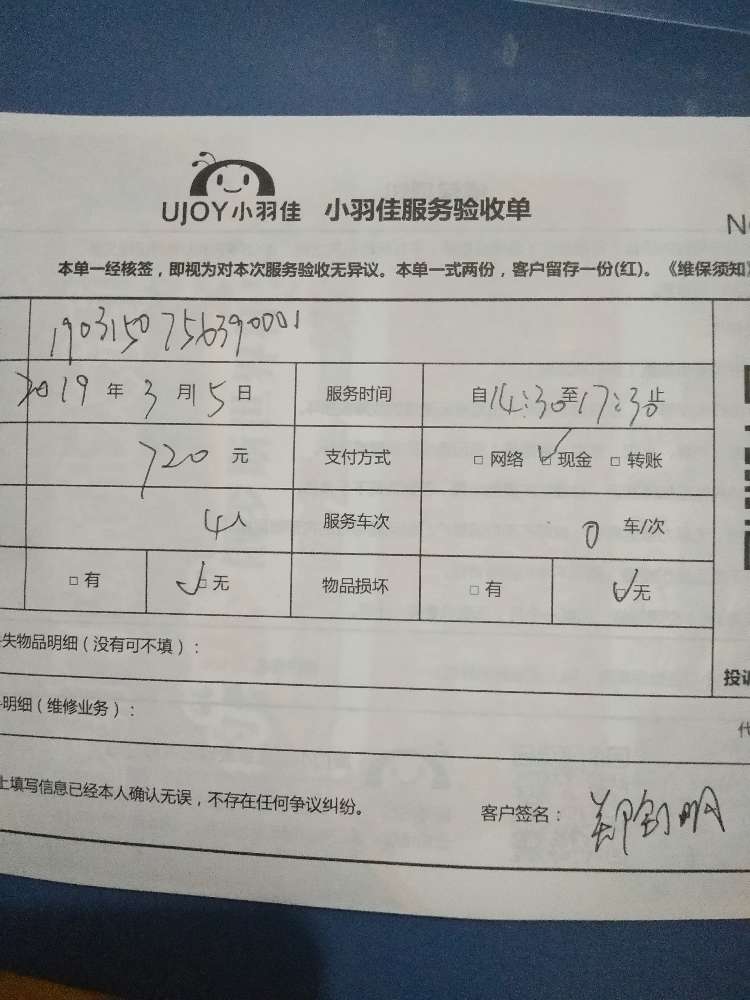 UJOY小羽佳 小羽佳服务验收单
本单一经核签，即视为对本次服务验收无异议。本单一式两份，客户留存一份(红)。《维保须知》
1903150756390001
2019年3月5日 服务时间 自14:30至17:30止
720元 支付方式 □网络 ☑现金 □转账
4人 服务车次 0车/次
□有 ☑无 物品损坏 □有 ☑无
失物品明细（没有可不填）：
投诉
明细（维修业务）：
代
上填写信息已经本人确认无误，不存在任何争议纠纷。 客户签名：